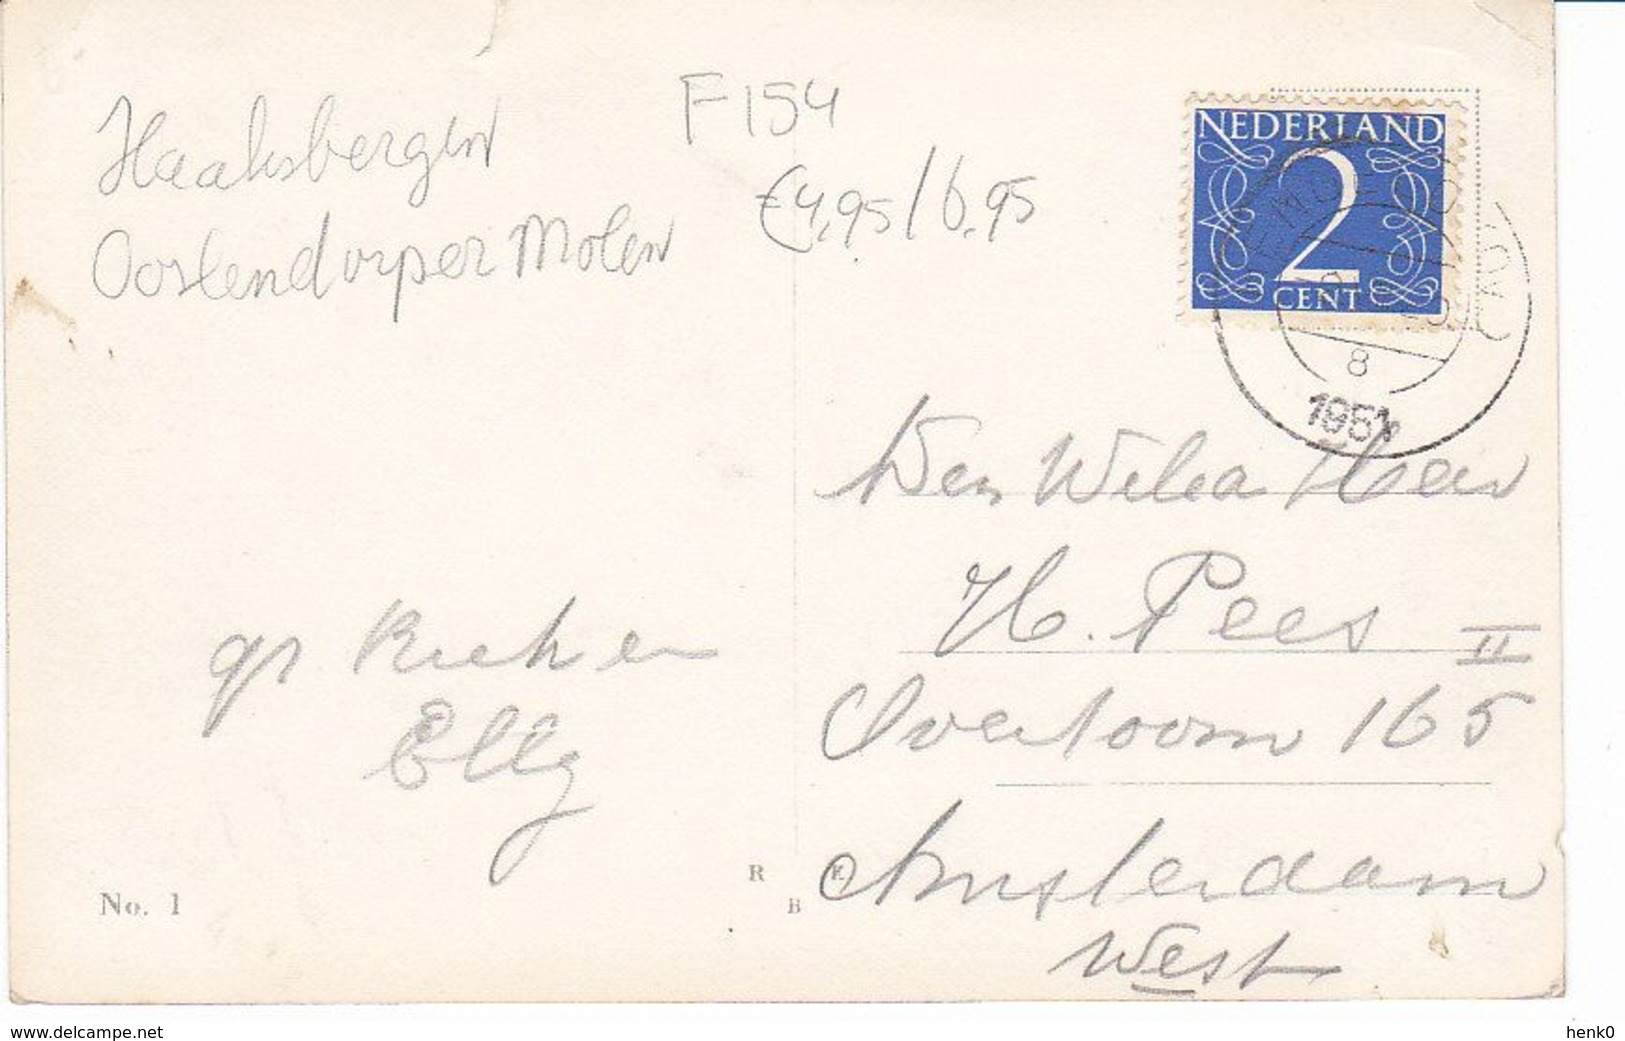 Haaksbergen
Oostendorper Molen
F 154
€4,95/6,95
NEDERLAND
2
CENT
8
1951
Den Weled Heer
H. Pees II
Overtoom 165
Amsterdam
West
gr
en
Elly
No. 1
R E
B
www.delcampe.net
henk0